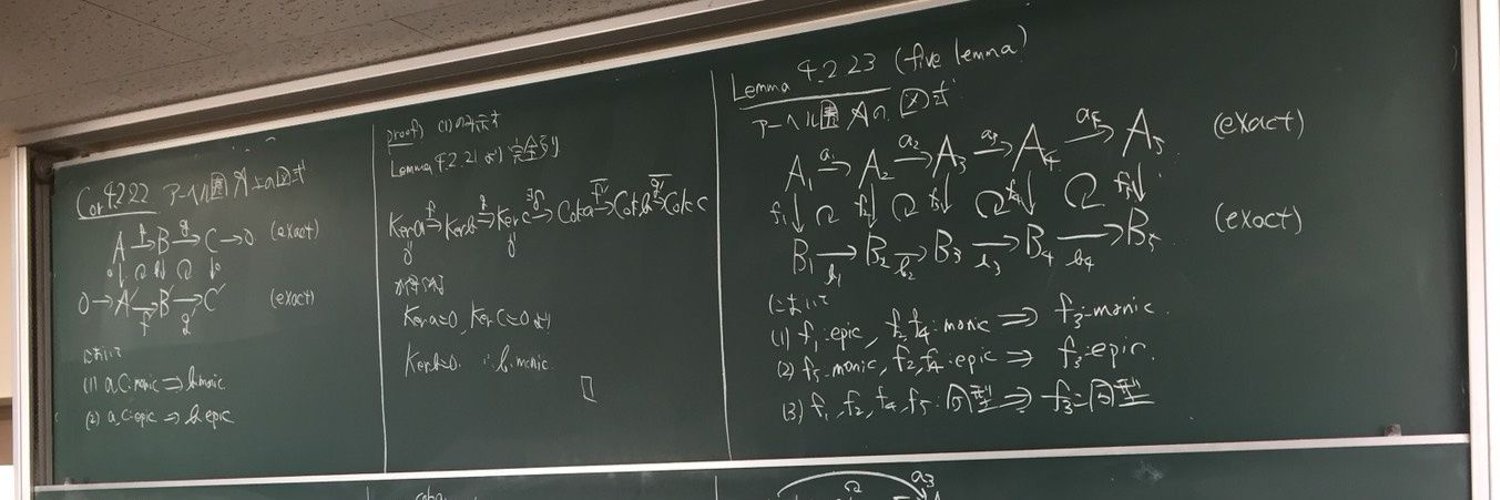 Cor 4.2.22 アーベル圏 A 上の図式
A →f B →g C → 0 (exact)
a↓ ↻ b↓ ↻ ↓c
0 → A' → B' → C' (exact)
f' g'
において
(1) a, c: monic ⇒ b monic
(2) a, c: epic ⇒ b epic
proof) (1)のみ示す
Lemma 4.2.21 より 完全列
Ker a →f Ker b →g Ker c →∃δ Cok a →f̄' Cok b →ḡ' Cok c
が
Ker a = 0, Ker c = 0 より
Ker b = 0. ∴ b: monic.
□
Lemma 4.2.23 (five lemma)
アーベル圏 A の 図式
A₁ →a₁ A₂ →a₂ A₃ →a₃ A₄ →a₄ A₅ (exact)
f₁↓ ↻ f₂↓ ↻ f₃↓ ↻ f₄↓ ↻ f₅↓
B₁ → B₂ → B₃ → B₄ → B₅ (exact)
b₁ b₂ b₃ b₄
において
(1) f₁: epic, f₂, f₄: monic ⇒ f₃: monic.
(2) f₅: monic, f₂, f₄: epic ⇒ f₃: epic.
(3) f₁, f₂, f₄, f₅: 同型 ⇒ f₃: 同型
a₃